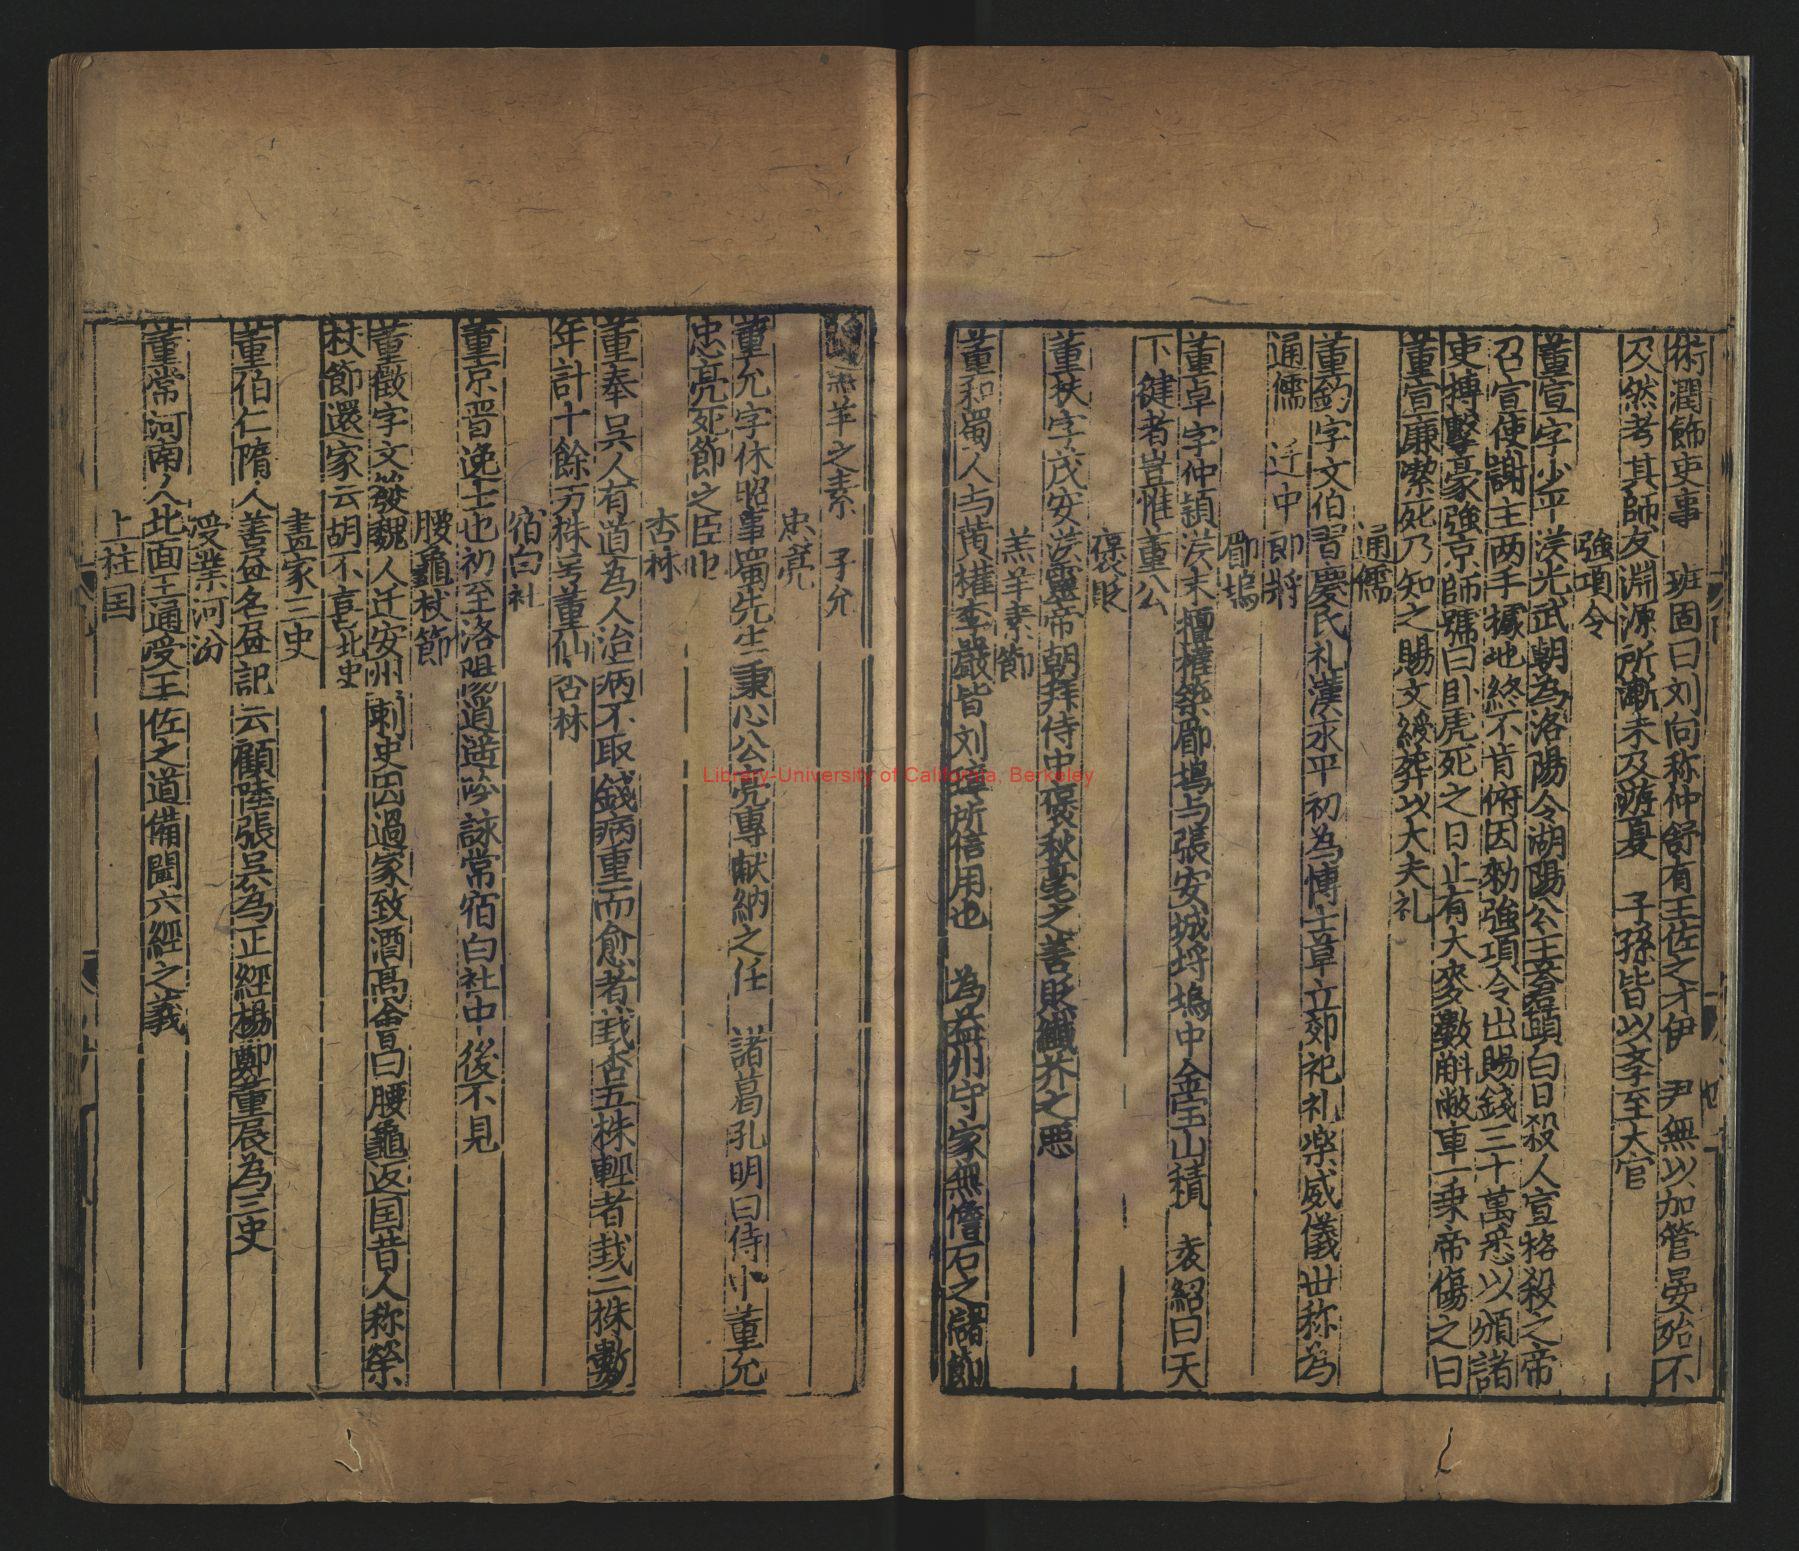 術潤飾吏事　班固曰刘向称仲舒有王佐之才伊　尹無以加管晏殆不
及然考其師友淵源所漸未及游夏　子孫皆以孝至大官
強項令
董宣字少平漢光武朝為洛陽令湖陽公主蒼頭白日殺人宣格殺之帝
召宣使謝主两手據地終不肯俯因勑強項令出賜錢三十萬悉以頒諸
吏搏擊豪強京師號曰卧虎死之日止有大麥數斛敝車一乗帝傷之曰
董宣廉㓗死乃知之賜文綬葬以大夫礼
通儒
董鈞字文伯習慶氏礼漢永平初為博士章立郊祀礼楽威儀世称為
通儒　迁中郎將
郿塢
董卓字仲頴漢末擅權築郿塢与張安城埒塢中金宝山積　袁紹曰天
下健者豈惟董公
褒貶
董扶字茂安漢靈帝朝拜侍中褒秋毫之善貶纖芥之悪
羔羊素節
董和蜀人与黄權李嚴皆刘璋所信用也　為益州守家無儋石之儲節
羔羊之素　子允
忠亮
董允字休昭事蜀先生秉心公亮專献納之任　諸葛孔明曰侍中董允
忠亮死節之臣也
杏林
董奉吳人有道為人治病不取錢病重而愈者栽杏五株輕者栽二株數
年計十餘万株号董仙杏林
宿白社
董京晋逸士也初至洛陽逍遥吟詠常宿白社中後不見
腰龜杖節
董徴字文發魏人迁安州刺史因過家致酒髙會曰腰龜返国昔人称榮
杖節還家云胡不喜北史
畫家三史
董伯仁隋人善畫名畫記云顧陸張吳為正經楊鄭董展為三史
受業河汾
董常河南人北面王通受王佐之道備聞六經之義
上柱国